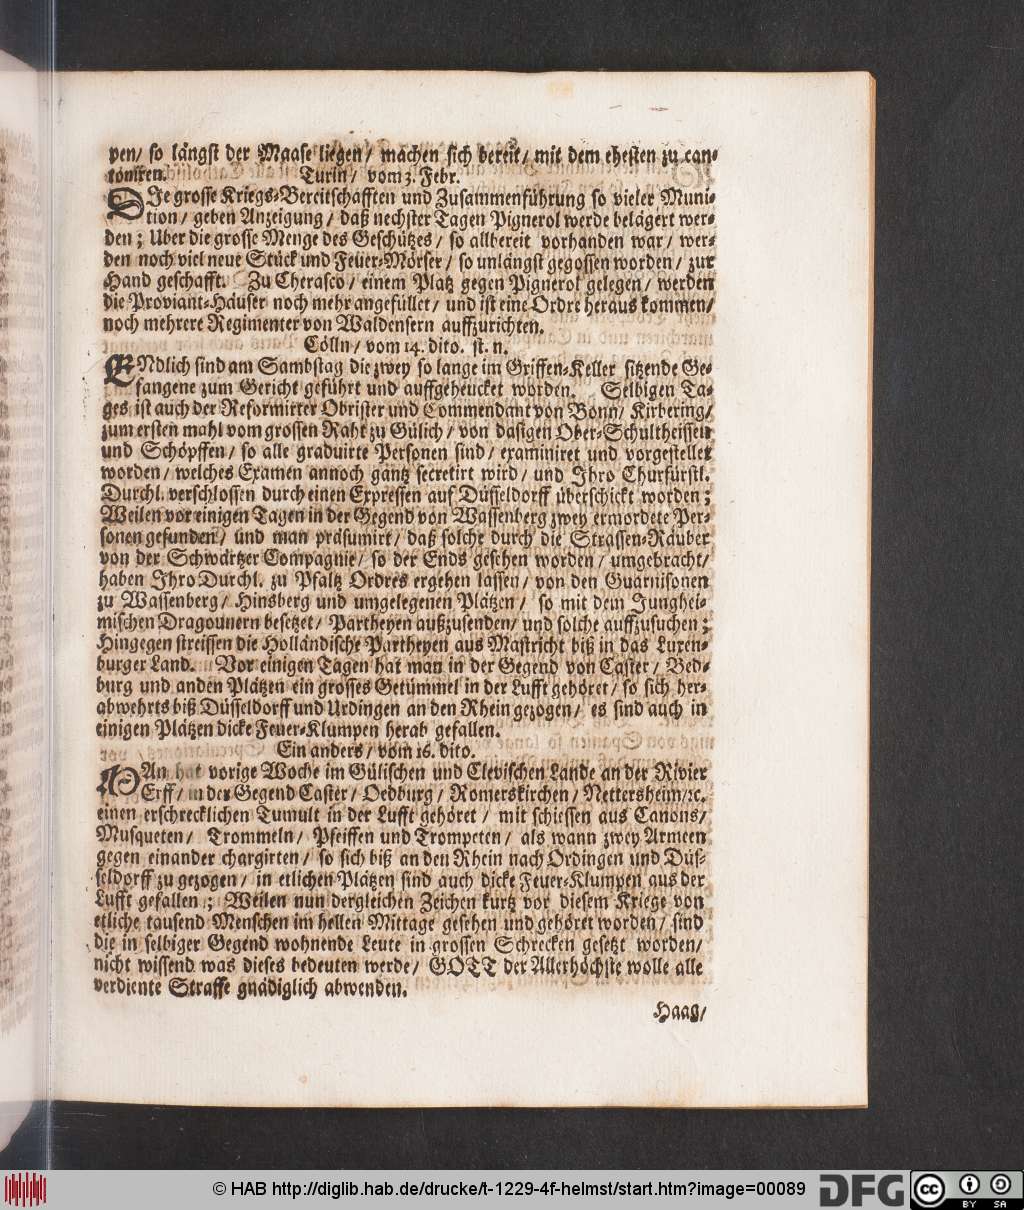 pen/ so längst der Maase liegen/ machen sich bereit/ mit dem ehesten zu can-
toniren. Turin/ vom 3. Febr.
DIe grosse Kriegs-Bereitschafften und Zusammenführung so vieler Muni-
tion/ geben Anzeigung/ daß nechster Tagen Pignerol werde belägert wer-
den; Uber die grosse Menge des Geschützes/ so allbereit vorhanden war/ wer-
den noch viel neue Stück und Feuer-Mörser/ so unlängst gegossen worden/ zur
Hand geschafft. Zu Cherasco/ einem Platz gegen Pignerol gelegen/ werden
die Proviant-Häuser noch mehr angefüllet/ und ist eine Ordre heraus kommen/
noch mehrere Regimenter von Waldensern auffzurichten.
Cölln/ vom 14. dito. st. n.
ENdlich sind am Sambstag die zwey so lange im Griffen-Keller sitzende Ge-
fangene zum Gericht geführt und auffgeheucket worden. Selbigen Ta-
ges ist auch der Reformirter Obrister und Commendant von Bonn/ Kirbering/
zum ersten mahl vom grossen Raht zu Gülich/ von dasigen Ober-Schultheissen
und Schöpffen/ so alle graduirte Personen sind/ examiniret und vorgestellet
worden/ welches Examen annoch gantz secretirt wird/ und Ihro Churfürstl.
Durchl. verschlossen durch einen Expressen auf Düsseldorff überschickt worden;
Weilen vor einigen Tagen in der Gegend von Wassenberg zwey ermordete Per-
sonen gefunden/ und man präsumirt/ daß solche durch die Strassen-Räuber
von der Schwartzer Compagnie/ so der Ends gesehen worden/ umgebracht/
haben Ihro Durchl. zu Pfaltz Ordres ergehen lassen/ von den Guarnisonen
zu Wassenberg/ Hinsberg und umgelegenen Plätzen/ so mit dem Junghei-
mischen Dragounern besetzet/ Partheyen außzusenden/ und solche auffzusuchen;
Hingegen streissen die Holländische Partheyen aus Mastricht biß in das Luxen-
burger Land. Vor einigen Tagen hat man in der Gegend von Caster/ Bed-
burg und anden Plätzen ein grosses Getümmel in der Lufft gehöret/ so sich her-
abwehrts biß Düsseldorff und Urdingen an den Rhein gezogen/ es sind auch in
einigen Plätzen dicke Feuer-Klumpen herab gefallen.
Ein anders/ vom 16. dito.
MAn hat vorige Woche im Gülischen und Clevischen Lande an der Rivier
Erff/ in der Gegend Caster/ Oedburg/ Romerskirchen/ Nettersheim/ꝛc.
einen erschrecklichen Tumult in der Lufft gehöret/ mit schiessen aus Canons/
Musqueten/ Trommeln/ Pfeiffen und Trompeten/ als wann zwey Armeen
gegen einander chargirten/ so sich biß an den Rhein nach Ordingen und Düs-
seldorff zu gezogen/ in etlichen Plätzen sind auch dicke Feuer-Klumpen aus der
Lufft gefallen; Weilen nun dergleichen Zeichen kurtz vor diesem Kriege von
etliche tausend Menschen im hellen Mittage gesehen und gehöret worden/ sind
die in selbiger Gegend wohnende Leute in grossen Schrecken gesetzt worden/
nicht wissend was dieses bedeuten werde/ GOTT der Allerhöchste wolle alle
verdiente Straffe gnädiglich abwenden.
Haag/
© HAB http://diglib.hab.de/drucke/t-1229-4f-helmst/start.htm?image=00089
DFG
cc BY SA